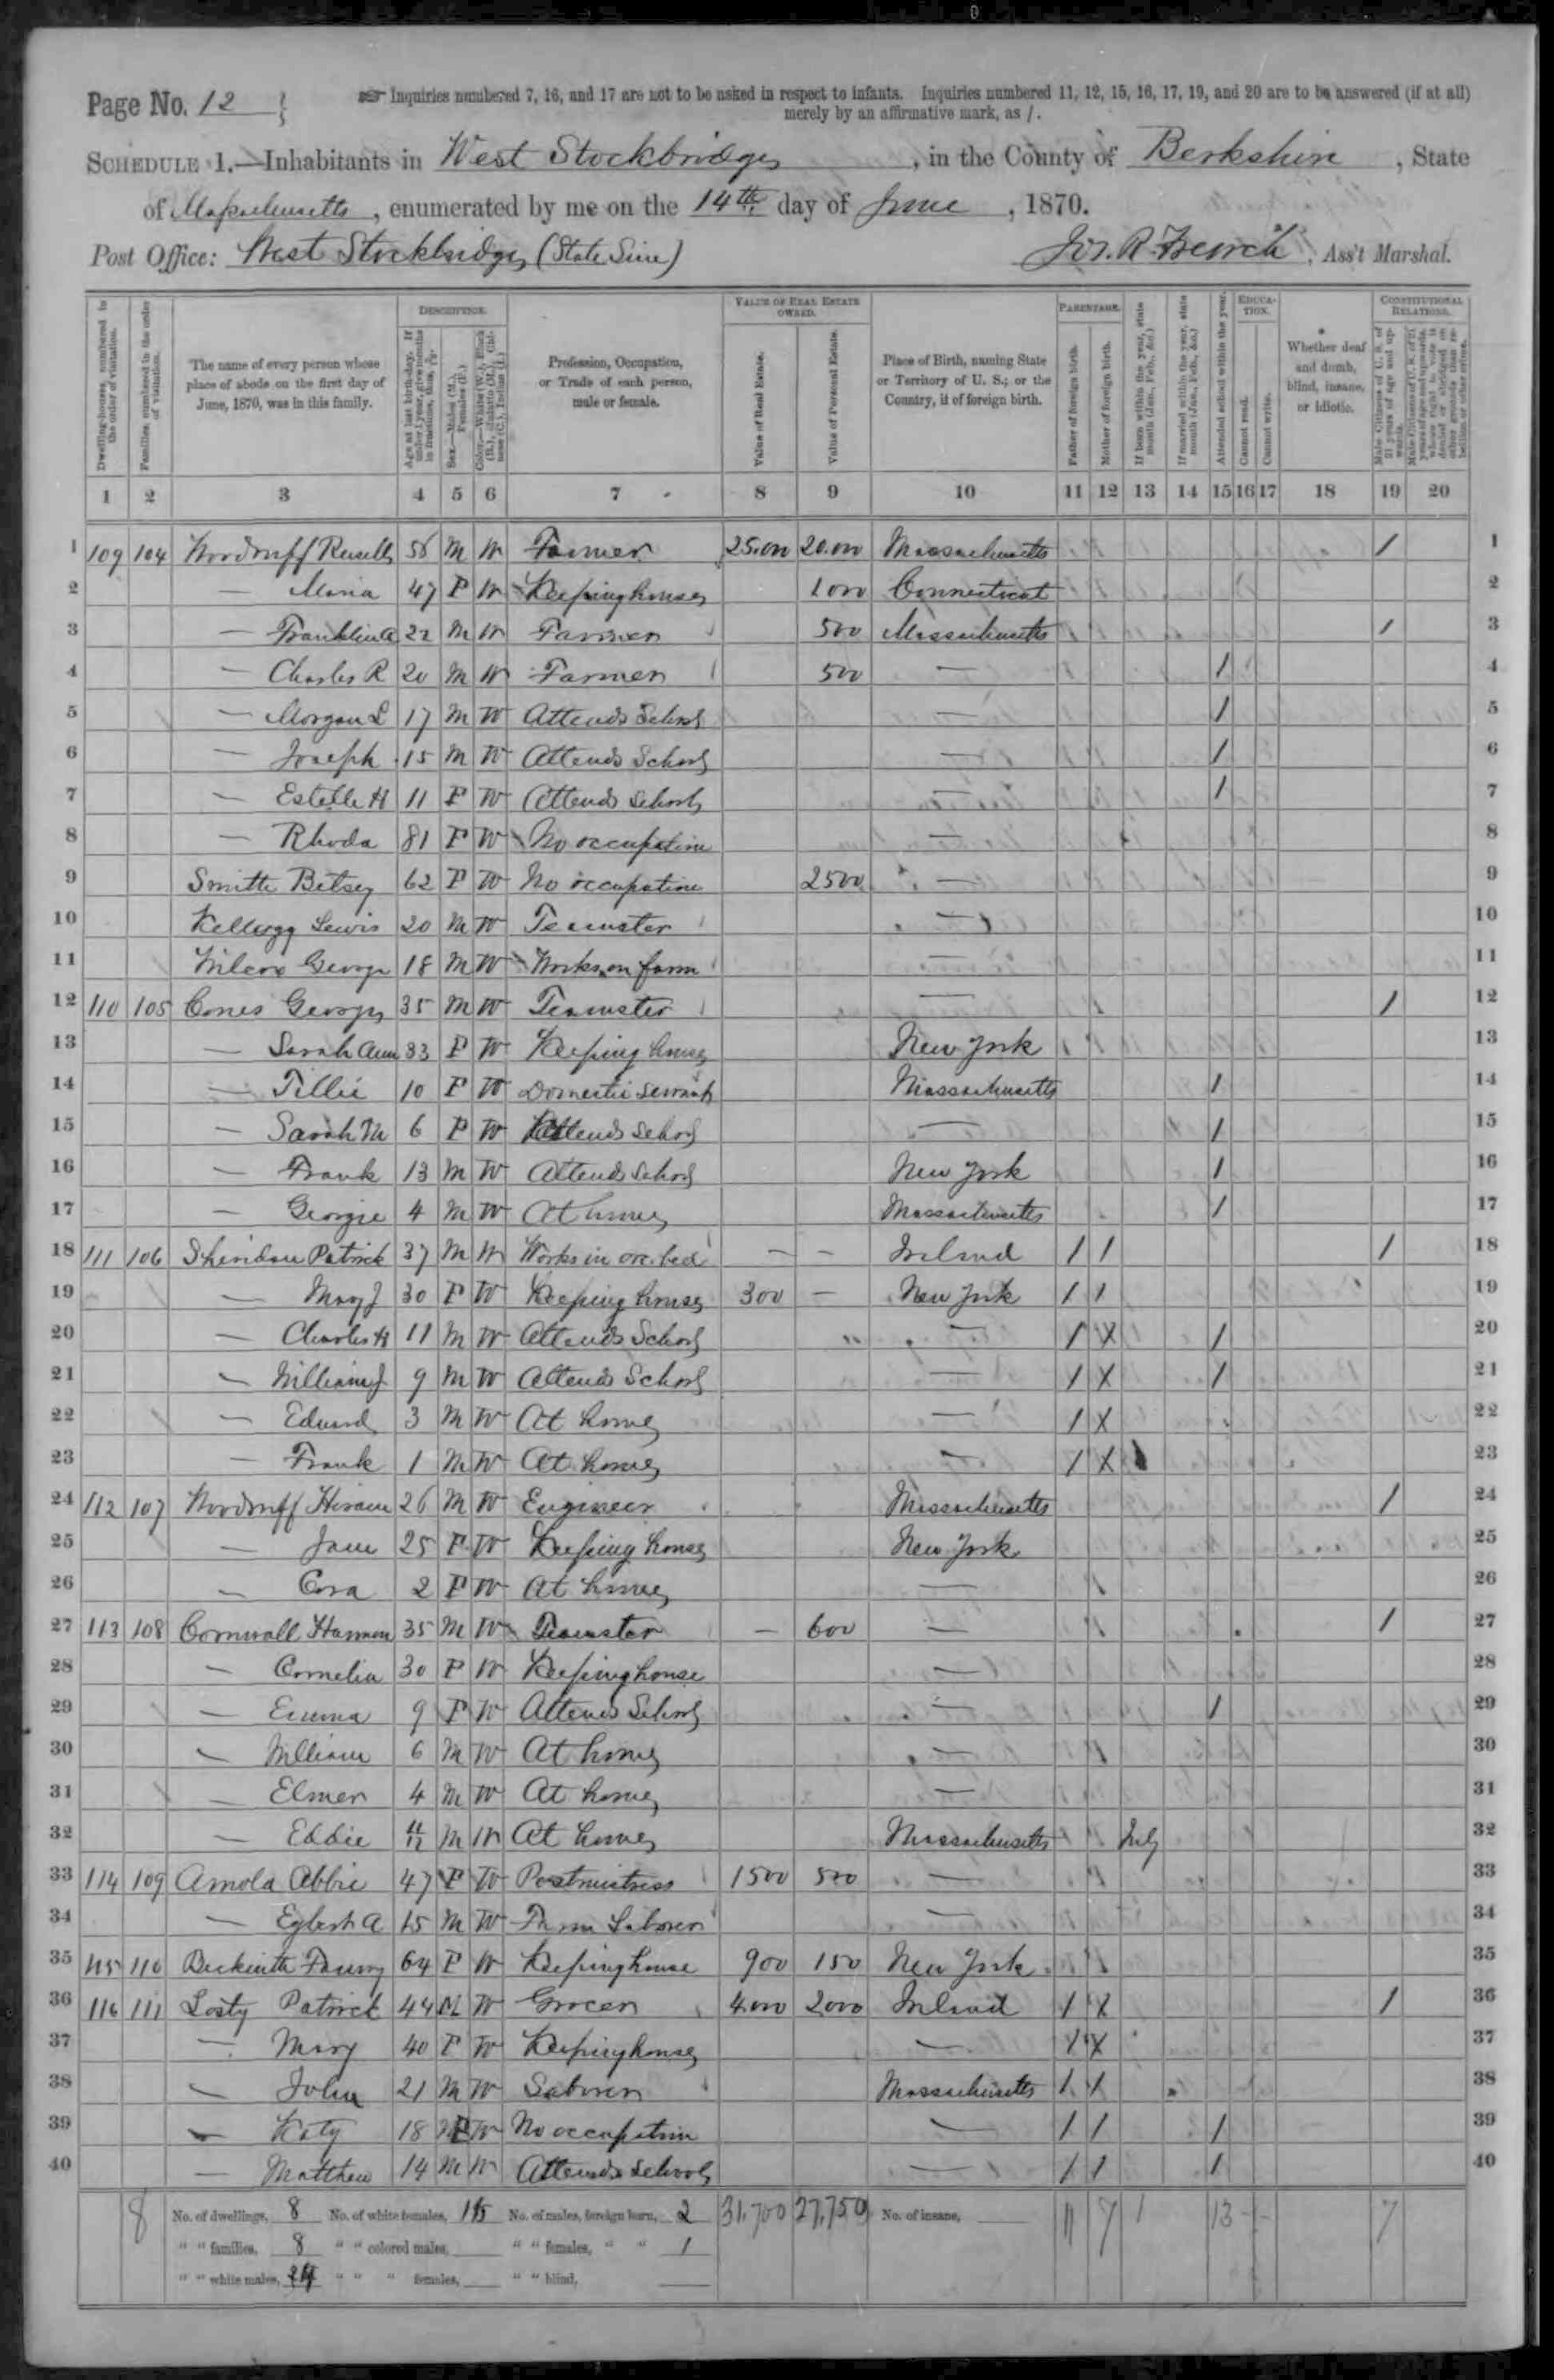 Page No. 12
Inquiries numbered 7, 16, and 17 are not to be asked in respect to infants. Inquiries numbered 11, 12, 15, 16, 17, 19, and 20 are to be answered (if at all)
merely by an affirmative mark, as /.
SCHEDULE 1.—Inhabitants in West Stockbridge, in the County of Berkshire, State
of Massachusetts, enumerated by me on the 14th day of June, 1870.
Post Office: West Stockbridge (State Line) Jos. R. French, Ass't Marshal.
Dwelling-houses, numbered in the order of visitation.
Families, numbered in the order of visitation.
The name of every person whose place of abode on the first day of June, 1870, was in this family.
DESCRIPTION.
Age at last birth-day. If under 1 year, give months in fractions, thus, 3/12
Sex.—Males (M.), Females (F.)
Color.—White (W.), Black (B.), Mulatto (M.), Chinese (C.), Indian (I.)
Profession, Occupation, or Trade of each person, male or female.
VALUE OF REAL ESTATE OWNED.
Value of Real Estate.
Value of Personal Estate.
Place of Birth, naming State or Territory of U. S.; or the Country, if of foreign birth.
PARENTAGE.
Father of foreign birth.
Mother of foreign birth.
If born within the year, state month (Jan., Feb., &c.)
If married within the year, state month (Jan., Feb., &c.)
Attended school within the year.
EDUCATION.
Cannot read.
Cannot write.
Whether deaf and dumb, blind, insane, or idiotic.
CONSTITUTIONAL RELATIONS.
Male Citizens of U. S. of 21 years of age and upwards.
Male Citizens of U. S. of 21 years of age and upwards, whose right to vote is denied or abridged on other grounds than rebellion or other crime.
1 2 3 4 5 6 7 8 9 10 11 12 13 14 15 16 17 18 19 20
1 109 104 Woodruff Russell 56 M W Farmer 25.000 20.000 Massachusetts / 1
2 — Maria 47 F W Keeping house 1000 Connecticut 2
3 — Franklin A 22 M W Farmer 500 Massachusetts / 3
4 — Charles R 20 M W Farmer 500 — / 4
5 — Morgan L 17 M W Attends School — / 5
6 — Joseph 15 M W Attends School — / 6
7 — Estelle H 11 F W Attends School — / 7
8 — Rhoda 81 F W No occupation — 8
9 Smith Betsey 62 F W No occupation 2500 — 9
10 Kellogg Lewis 20 M W Teamster — 10
11 Wilcox George 18 M W Works on farm — 11
12 110 105 Cones George 35 M W Teamster — / 12
13 — Sarah Ann 33 F W Keeping house New York 13
14 — Tillie 10 F W Domestic servant Massachusetts / 14
15 — Sarah M 6 F W Attends School — / 15
16 — Frank 13 M W Attends School New York / 16
17 — Georgie 4 M W At home Massachusetts / 17
18 111 106 Sheridan Patrick 37 M W Works in ore bed — — Ireland / / / 18
19 — Mary J 30 F W Keeping house 300 — New York / / 19
20 — Charles H 11 M W Attends School — / X / 20
21 — William J 9 M W Attends School — / X / 21
22 — Edward 3 M W At home — / X 22
23 — Frank 1 M W At home — / X 23
24 112 107 Woodruff Hiram 26 M W Engineer Massachusetts / 24
25 — Jane 25 F W Keeping house New York 25
26 — Cora 2 F W At home — 26
27 113 108 Cornwall Harmon 35 M W Teamster — 600 — / 27
28 — Cornelia 30 F W Keeping house — 28
29 — Emma 9 F W Attends School — / 29
30 — William 6 M W At home — 30
31 — Elmer 4 M W At home — 31
32 — Eddie 11/12 M W At home Massachusetts July 32
33 114 109 Arnold Abbie 47 F W Postmistress 1500 500 — 33
34 — Egbert A 15 M W Farm Laborer — 34
35 115 110 Beckwith Fanny 64 F W Keeping house 900 150 New York 35
36 116 111 Losty Patrick 44 M W Grocer 4.000 2000 Ireland / X / 36
37 — Mary 40 F W Keeping house — / X 37
38 — John 21 M W Laborer Massachusetts / / 38
39 — Katy 18 F W No occupation — / / / 39
40 — Matthew 14 M W Attends School — / / / 40
8 No. of dwellings, 8 No. of white females, 15 No. of males, foreign born, 2 31,700 27,750 No. of insane, 11 9 1 13 7
" " families, 8 " " colored males, " " females, " " 1
" " white males, " " " females, " " blind,